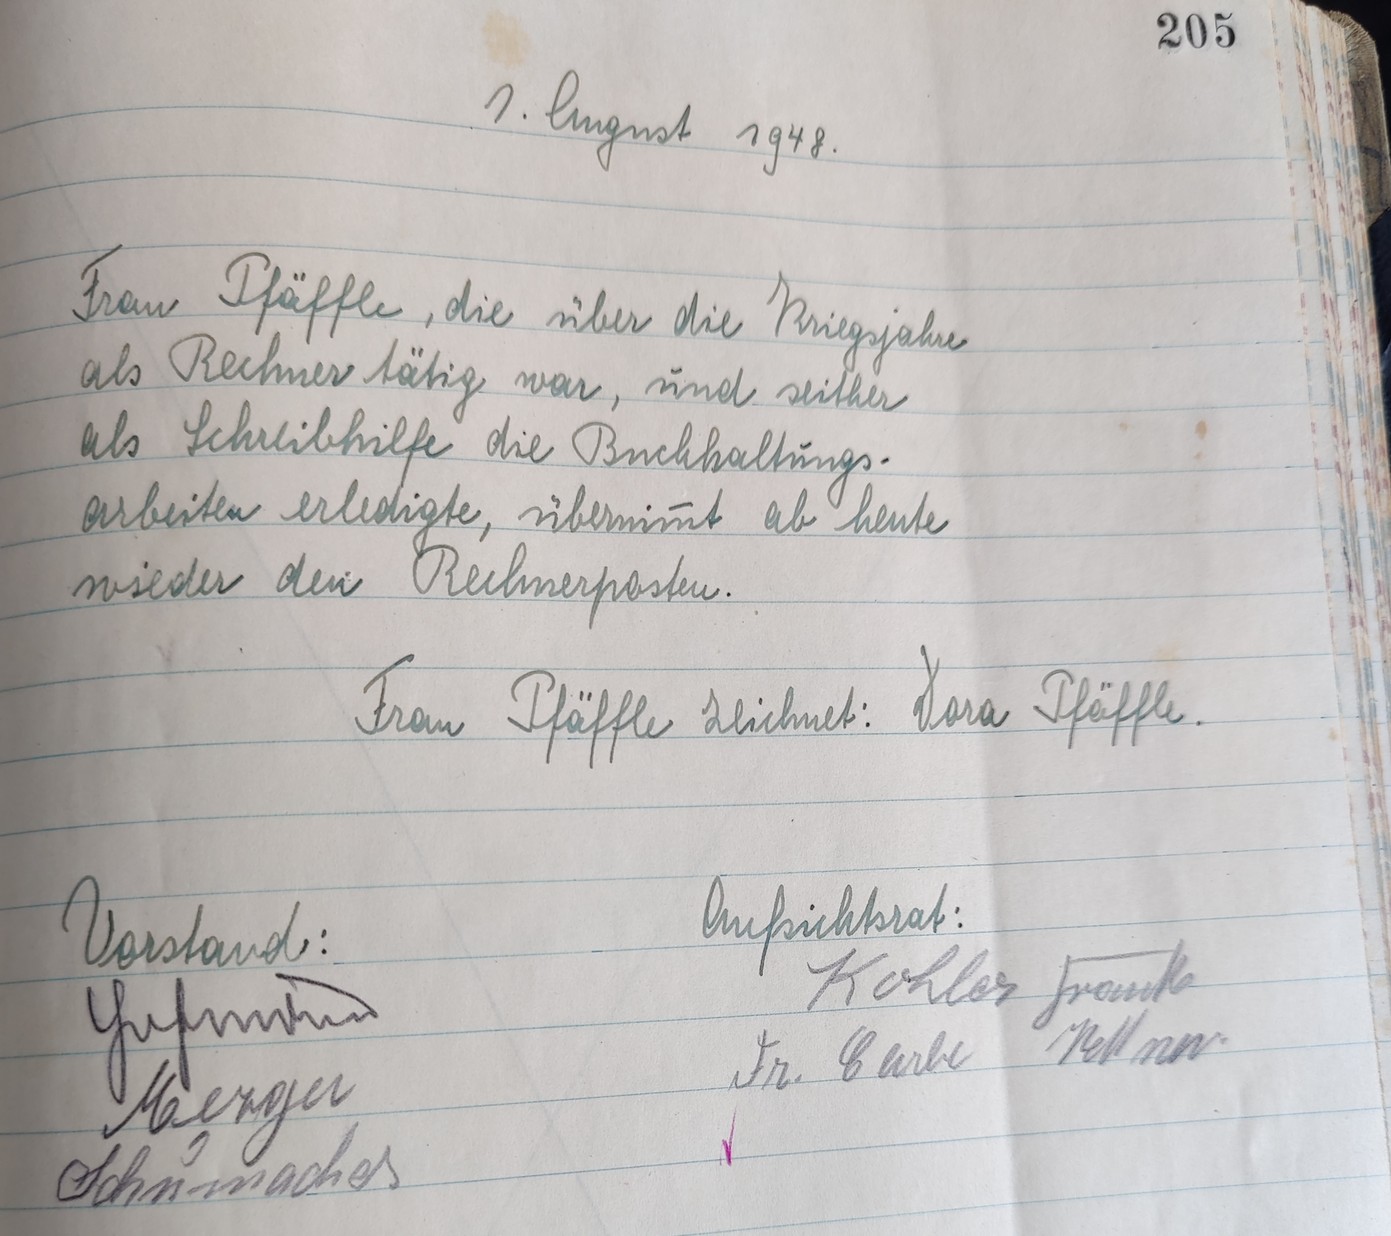 205
1. August 1948.
Frau Pfäffle, die über die Kriegsjahre
als Rechner tätig war, und seither
als Schreibhilfe die Buchhaltungs-
arbeiten erledigte, übernim̅t ab heute
wieder den Rechnerposten.
Frau Pfäffle zeichnet: Dora Pfäffle.
Vorstand:
Aufsichtsrat:
Kohler Frank
Fr. Carle
Merger
Schumacher